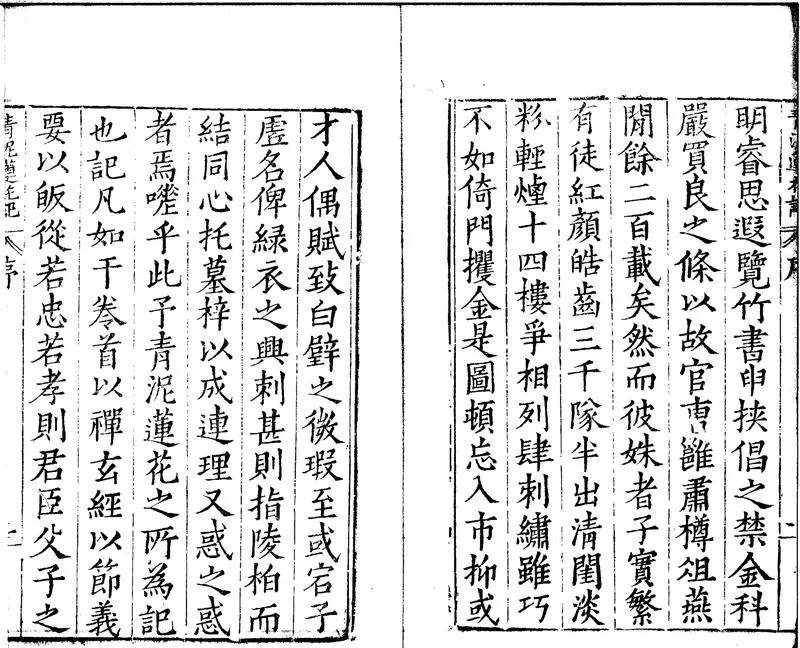 明睿思遐覽竹書申挾倡之禁金科
嚴買良之條以故官曹雝肅樽俎燕
閒餘二百載矣然而彼姝者子實繁
有徒紅顏皓齒三千隊半出清閨淡
粉輕煙十四樓爭相列肆刺繡雖巧
不如倚門攫金是圖頓忘入市抑或
才人偶賦致白璧之微瑕至或宕子
虛名俾綠衣之興刺甚則指陵柏而
結同心托墓梓以成連理又惑之惑
者焉嗟乎此予青泥蓮花之所為記
也記凡如干卷首以禪玄經以節義
要以皈從若忠若孝則君臣父子之
青泥蓮花記 序 二